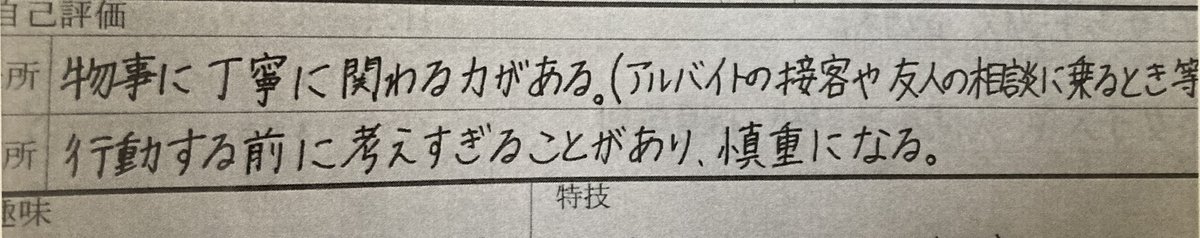 自己評価
所 物事に丁寧に関わる力がある。(アルバイトの接客や友人の相談に乗るとき等
所 行動する前に考えすぎることがあり、慎重になる。
趣味 特技